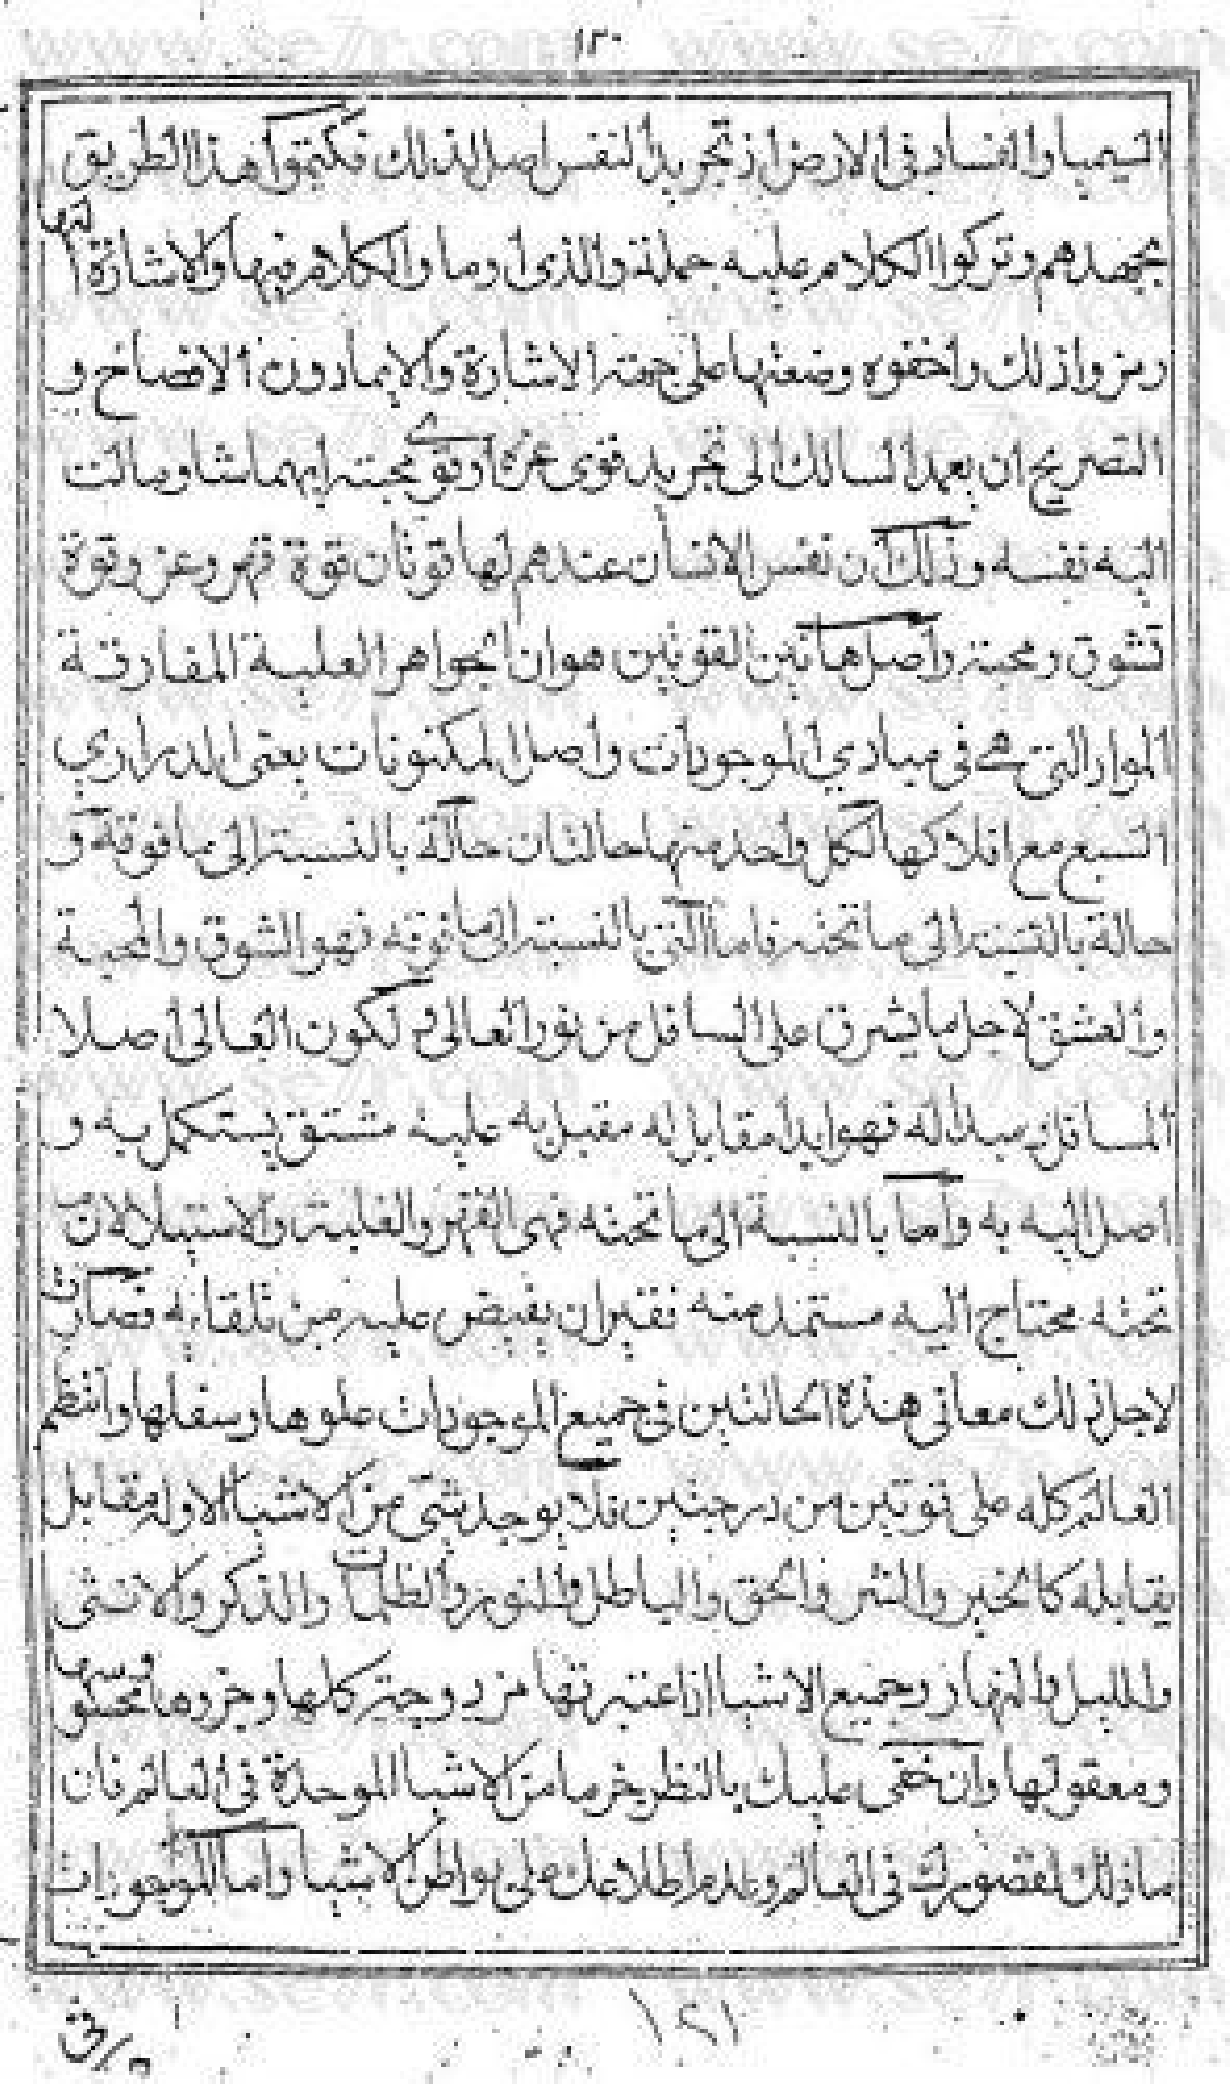 ١٣٠
السيميا والفساد في الارض اذ تجريد النفس اصل لذلك فكتموا هذا الطريق
بجهدهم وتركوا الكلام عليه جملة والذي اوما والكلام فيها والاشارة اليها
رمزوا ذلك واخفوه وضعتها على جهته الاشارة والايما دون الافصاح و
التصريح ان يعمد السالك الى تجريد قوى او قوى محبته ايهما شا ومالت
اليه نفسه وذلك ان نفس الانسان عندهم لها قوتان قوة قهر وعز وقوة
تشوق ومحبة واصل هاتين القوتين هو ان الجواهر العلية المفارقة
المواد التي هي في مبادي الموجودات واصل المكنونات يعنى الدراري
السبع مع افلاكها لكل واحد منها حالتان حالة بالنسبة الى ما فوقه و
حالة بالنسبة الى ما تحته فاما التي بالنسبة الى ما فوقه فهو الشوق والمحبة
والعشق لاجل ما يشرق على السافل من نور العالى و لكون العالى اصلا
للسافل ومبدا له فهو ابدا مقابل له مقبل به عليه مشتق يستكمل به و
اصل اليه به واما بالنسبة الى ما تحته فهى القهر والغلبة والاستيلا لان ما
تحته محتاج اليه مستمد منه فقير ان يفيض عليه من تلقايه فصارت
لاجل ذلك معاني هذه الحالتين في جميع الموجودات علوها وسفلها وانتظم
العالم كله على قوتين من درجتين فلا يوجد شى من الاشيا الا وله مقابل
يقابله كالخير والشر والحق والباطل والنور والظلمات والذكر والانثى
والليل والنهار وجميع الاشيا اذا اعتبرتها مزدوجة كلها وجزوها محسوسها
ومعقولها وان خفى عليك بالنظر جزما من الاشيا الموجدة في العالم فان
ما ذلك لقصورك في العالم وعدم اطلاعك على بواطن الاشيا واما الموجودات
١٢١
في